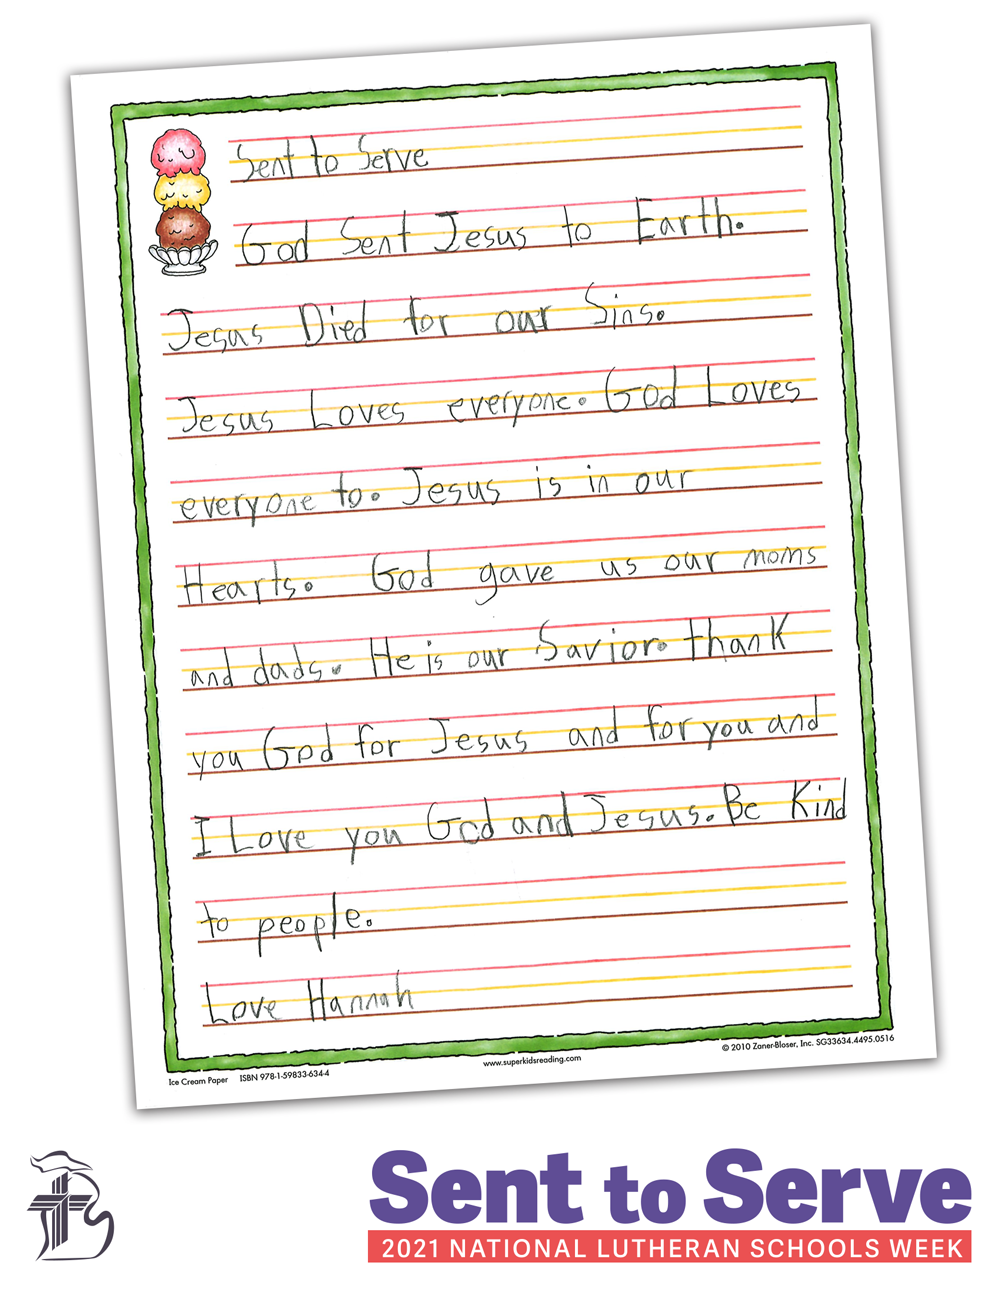 Sent to Serve
God Sent Jesus to Earth.
Jesus Died for our Sins.
Jesus Loves everyone. God Loves
everyone to. Jesus is in our
Hearts. God gave us our moms
and dads. He is our Savior. thank
you God for Jesus and for you and
I Love you God and Jesus. Be Kind
to people.
Love Hannah
Ice Cream Paper ISBN 978-1-59833-634-4
www.superkidsreading.com
© 2010 Zaner-Bloser, Inc. SG33634.4495.0516
Sent to Serve
2021 NATIONAL LUTHERAN SCHOOLS WEEK